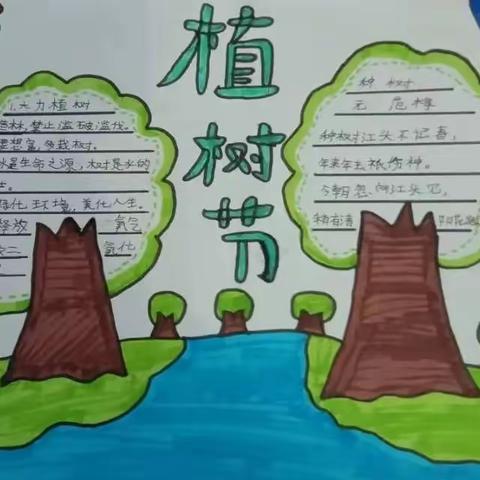 植树节
1.大力植树
林,禁止滥砍滥伐。
想富,多栽树。
是生命之源,树是水的
化环境,美化人生。
释放 氧气
二 氧化
种树
元 危梅
种树江头不记春,
年来年去
今朝忽向江头见,
稍有清